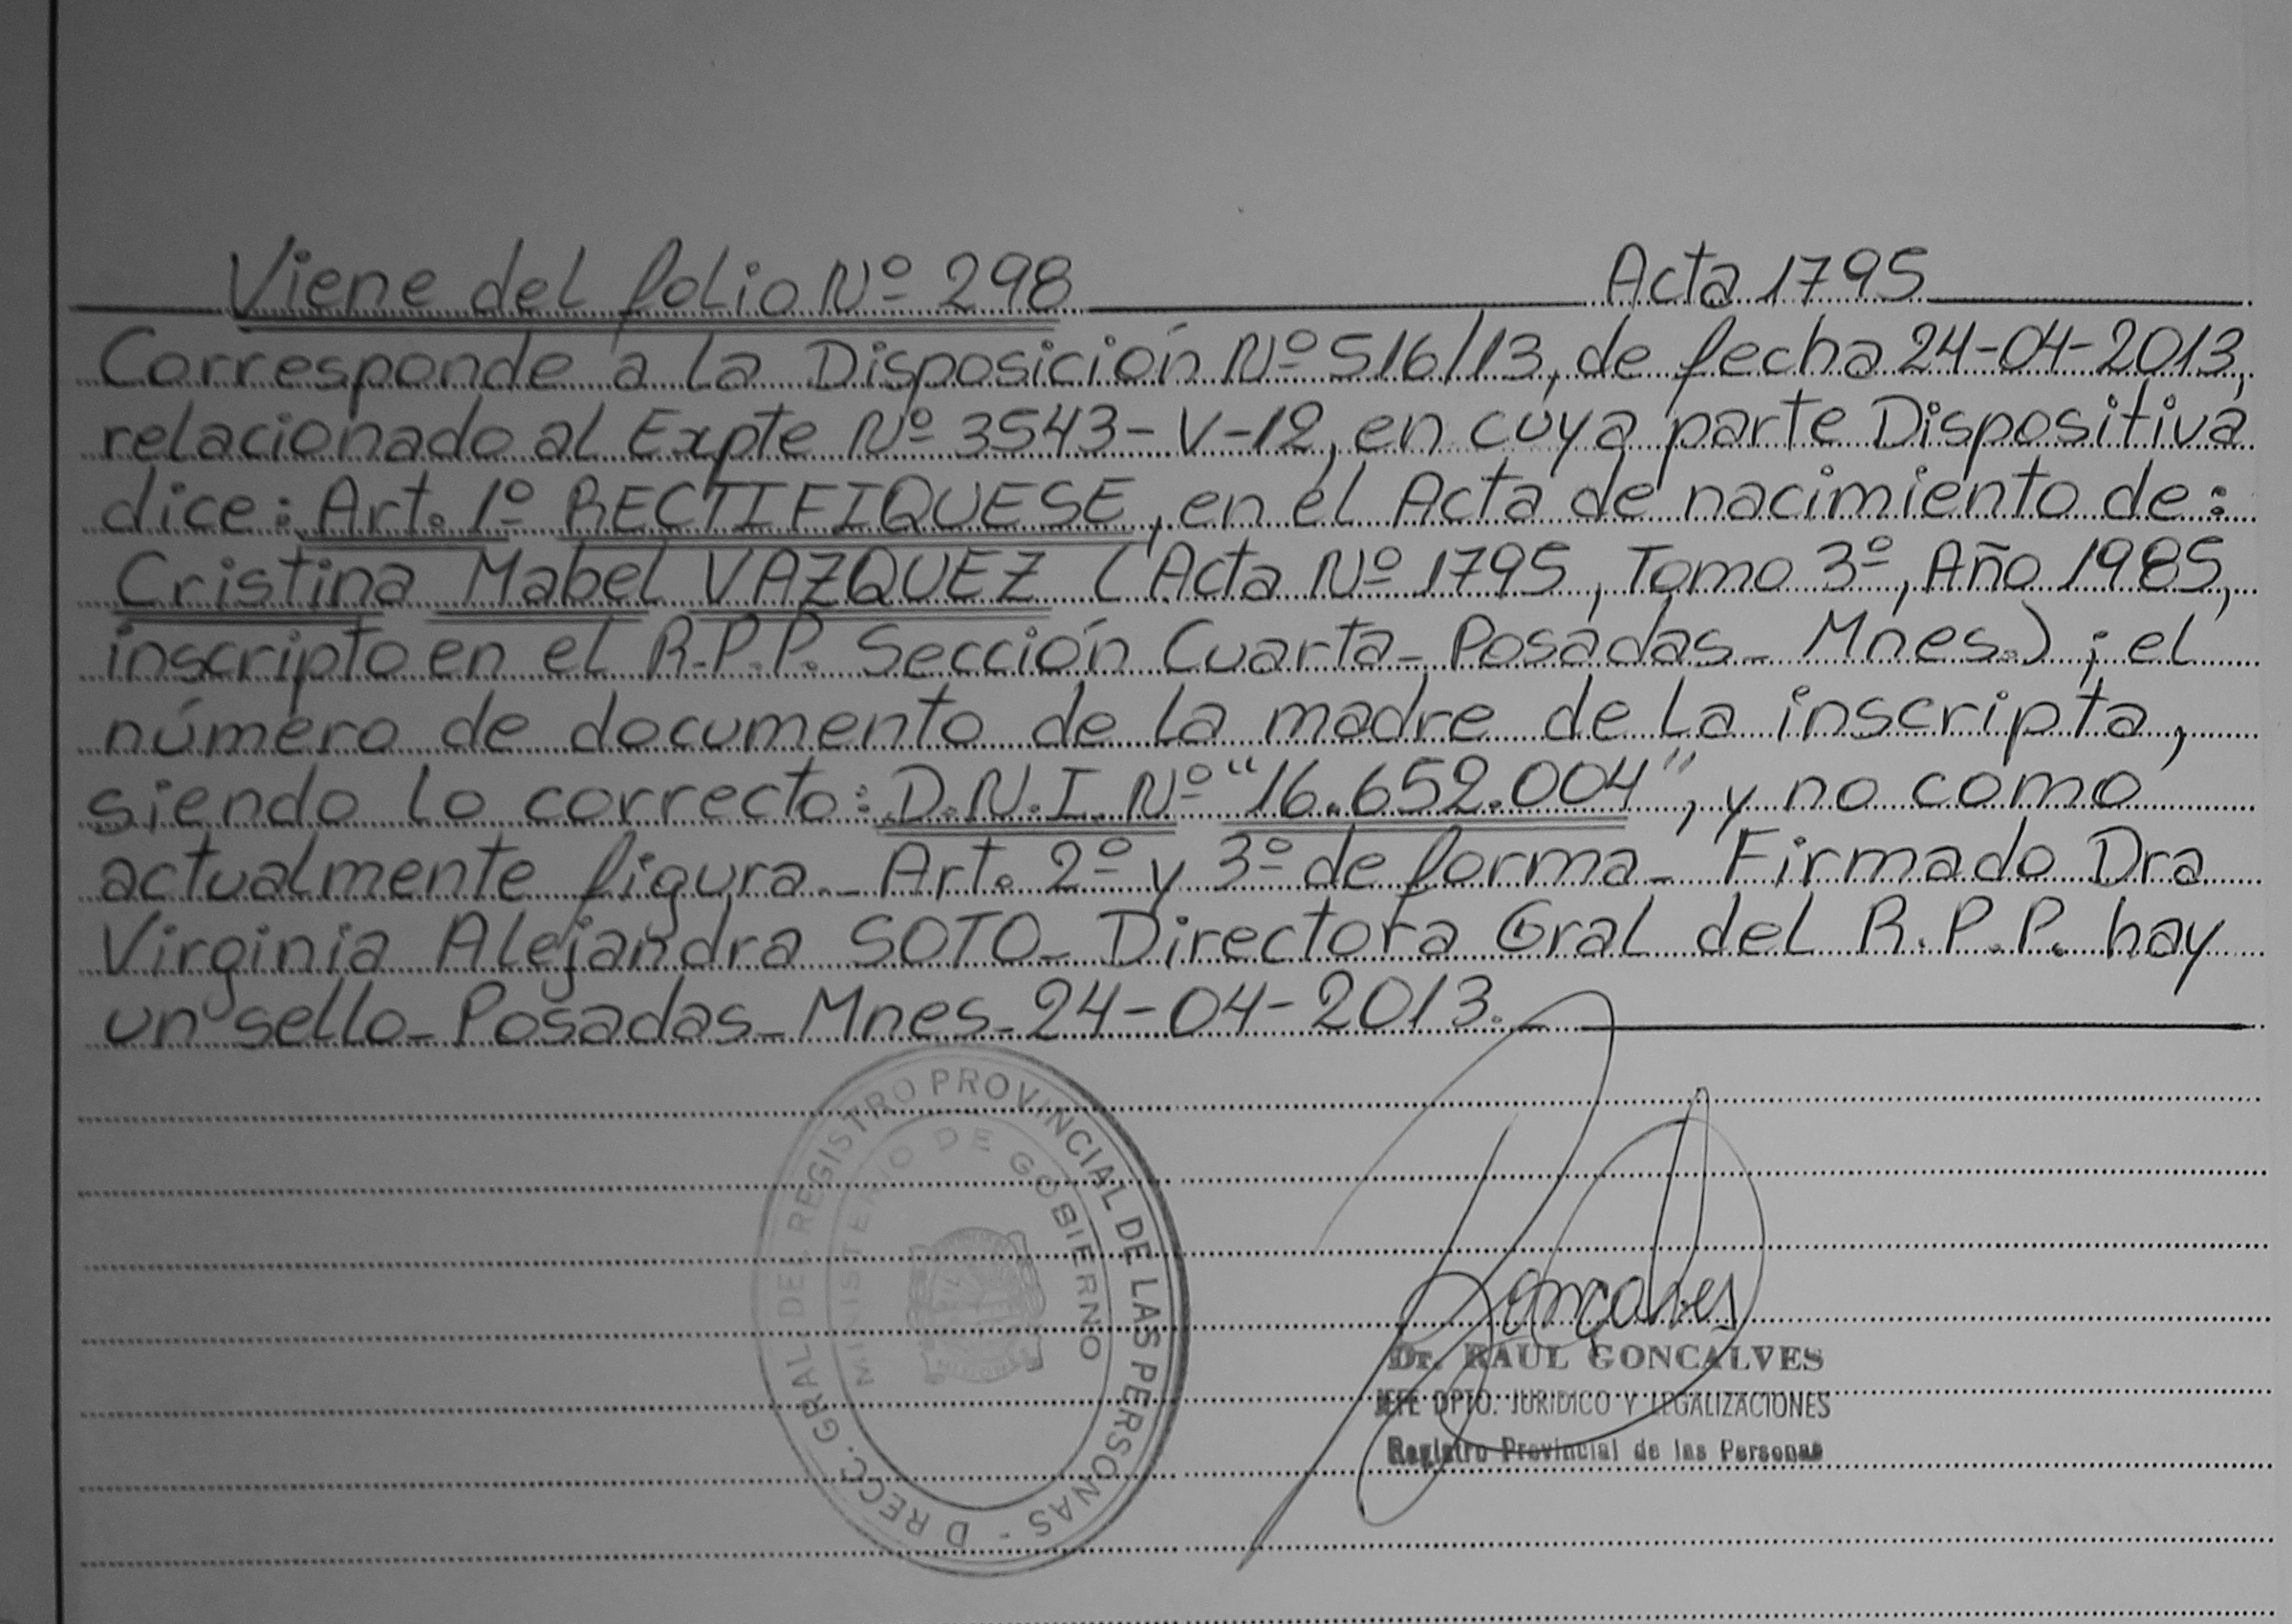 Viene del folio Nº 298 Acta 1795
Corresponde a la Disposición Nº 516/13, de fecha 24-04-2013,
relacionado al Expte Nº 3543-V-12, en cuya parte Dispositiva
dice: Art. 1º RECTIFIQUESE, en el Acta de nacimiento de:
Cristina Mabel VAZQUEZ (Acta Nº 1795, Tomo 3º, Año 1985,
inscripto en el R.P.P. Sección Cuarta- Posadas- Mnes.); el
número de documento de la madre de la inscripta,
siendo lo correcto: D.N.I. Nº "16.652.004", y no como
actualmente figura.- Art. 2º y 3º de forma- Firmado Dra
Virginia Alejandra SOTO- Directora Gral del R.P.P. hay
un sello- Posadas- Mnes- 24-04-2013.-
DIRECC. GRAL. DEL REGISTRO PROVINCIAL DE LAS PERSONAS -
MINISTERIO DE GOBIERNO
MISIONES
Goncalves
Dr. RAUL GONCALVES
JEFE DPTO. JURIDICO Y LEGALIZACIONES
Registro Provincial de las Personas